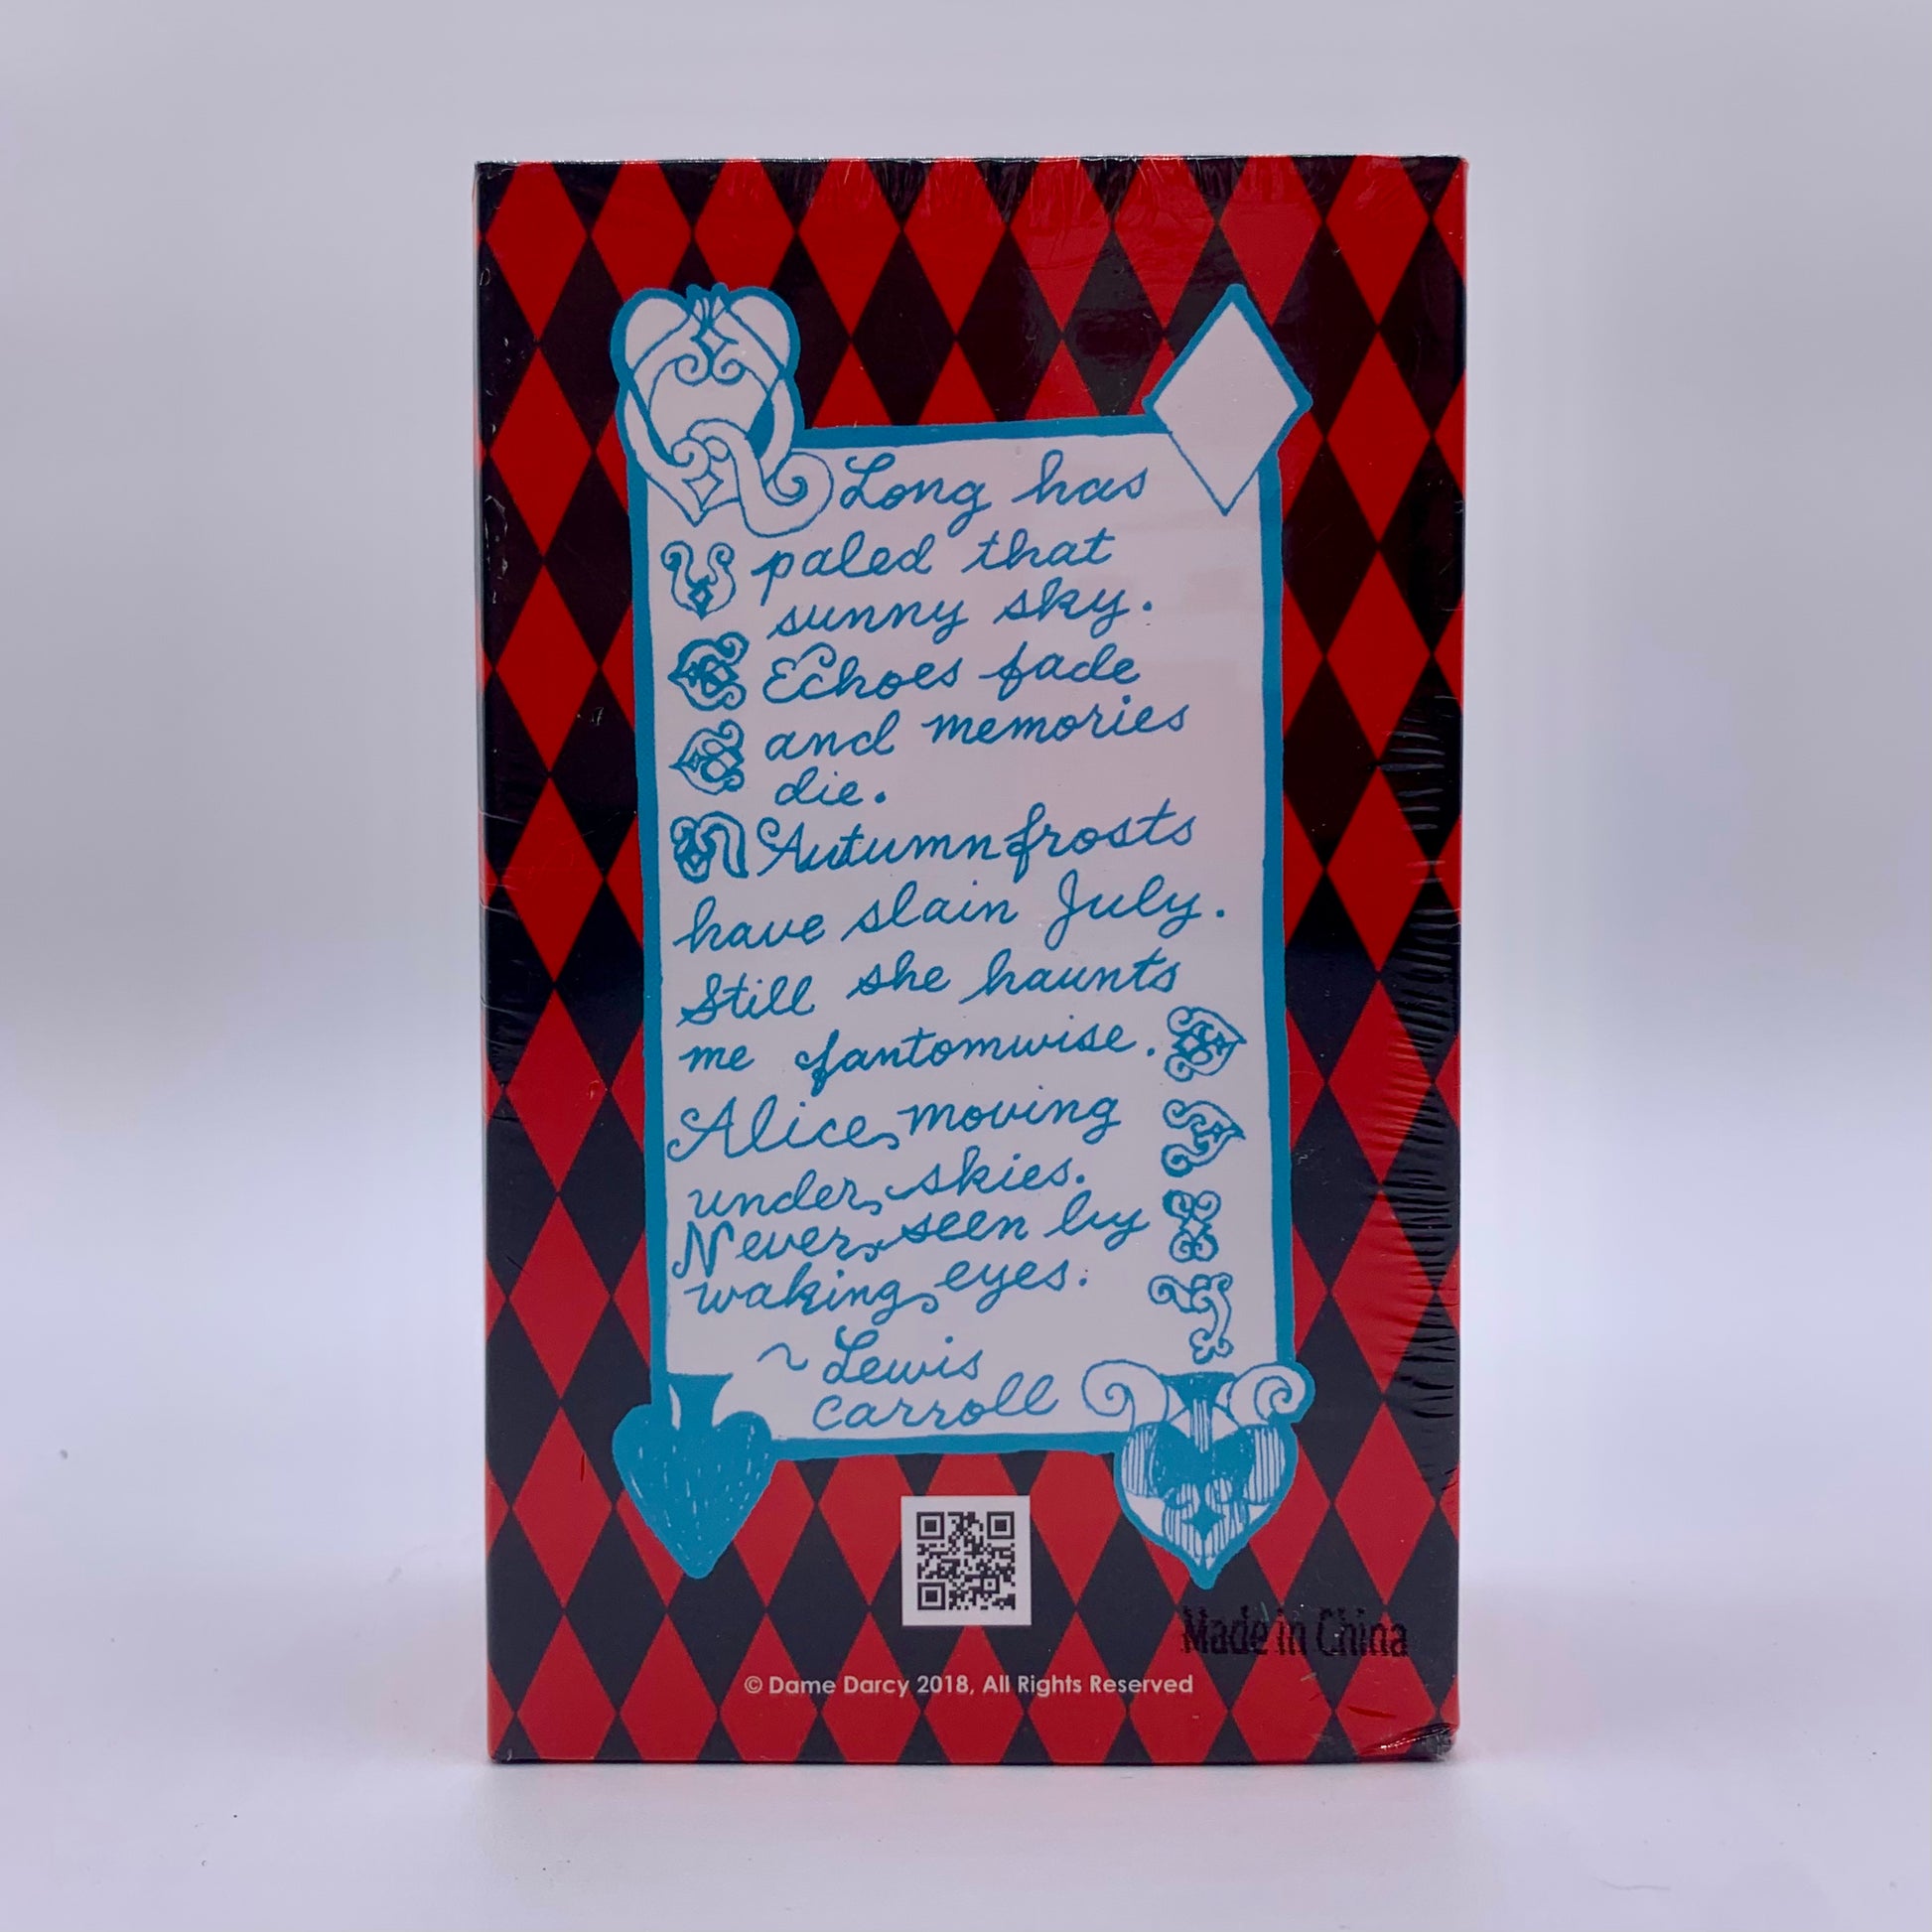 Long has
paled that
sunny sky.
Echoes fade
and memories
die.
Autumn frosts
have slain July.
Still she haunts
me fantomwise.
Alice, moving
under skies.
Never seen by
waking eyes.
~ Lewis
Carroll
Made in China
© Dame Darcy 2018, All Rights Reserved